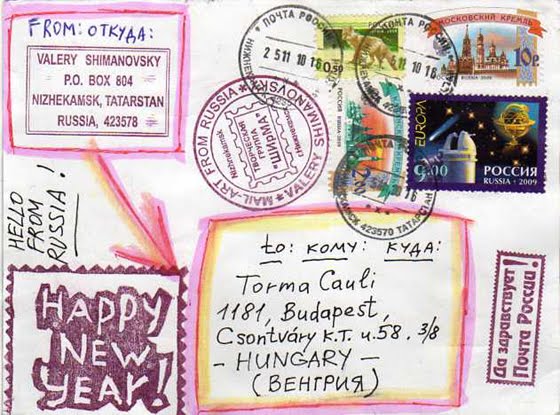 FROM: ОТКУДА:
VALERY SHIMANOVSKY
P.O. BOX 804
NIZHEKAMSK, TATARSTAN
RUSSIA, 423578
ПОЧТА РОССИИ
25 11 10 16
0,50
РОССИЯ
МОСКОВСКИЙ КРЕМЛЬ
10р
RUSSIA · 2009
EUROPA
9.00
РОССИЯ
RUSSIA · 2009
423570 ТАТАРСТАН
MAIL-ART FROM RUSSIA
VALERY SHIMANOVSKY
Nizhnekamsk
ТВОРЧЕСКАЯ
ГРУППА
"ШИМА"
HELLO
FROM
RUSSIA!
HAPPY
NEW
YEAR!
to: кому: куда:
Torma Cauli
1181, Budapest,
Csontváry K.T. u.58. 3/8
- HUNGARY -
(ВЕНГРИЯ)
Да здравствует
Почта России!